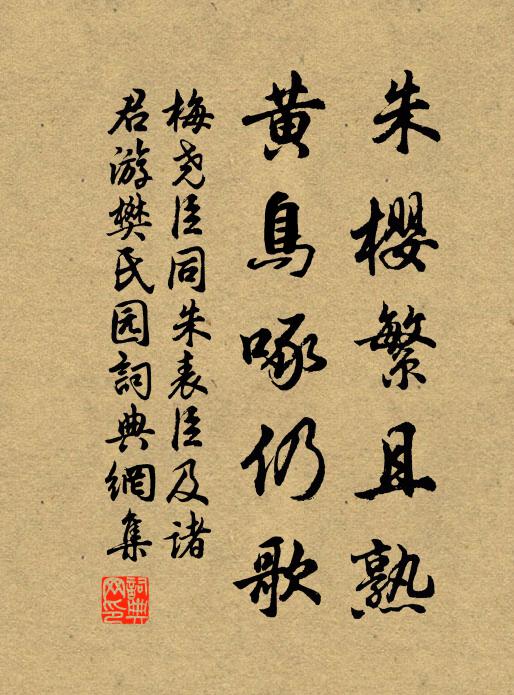 朱櫻繁且熟
黄鳥啄仍歌
梅尧臣同朱表臣及诸
君游樊氏园詞典網集
詞典网印